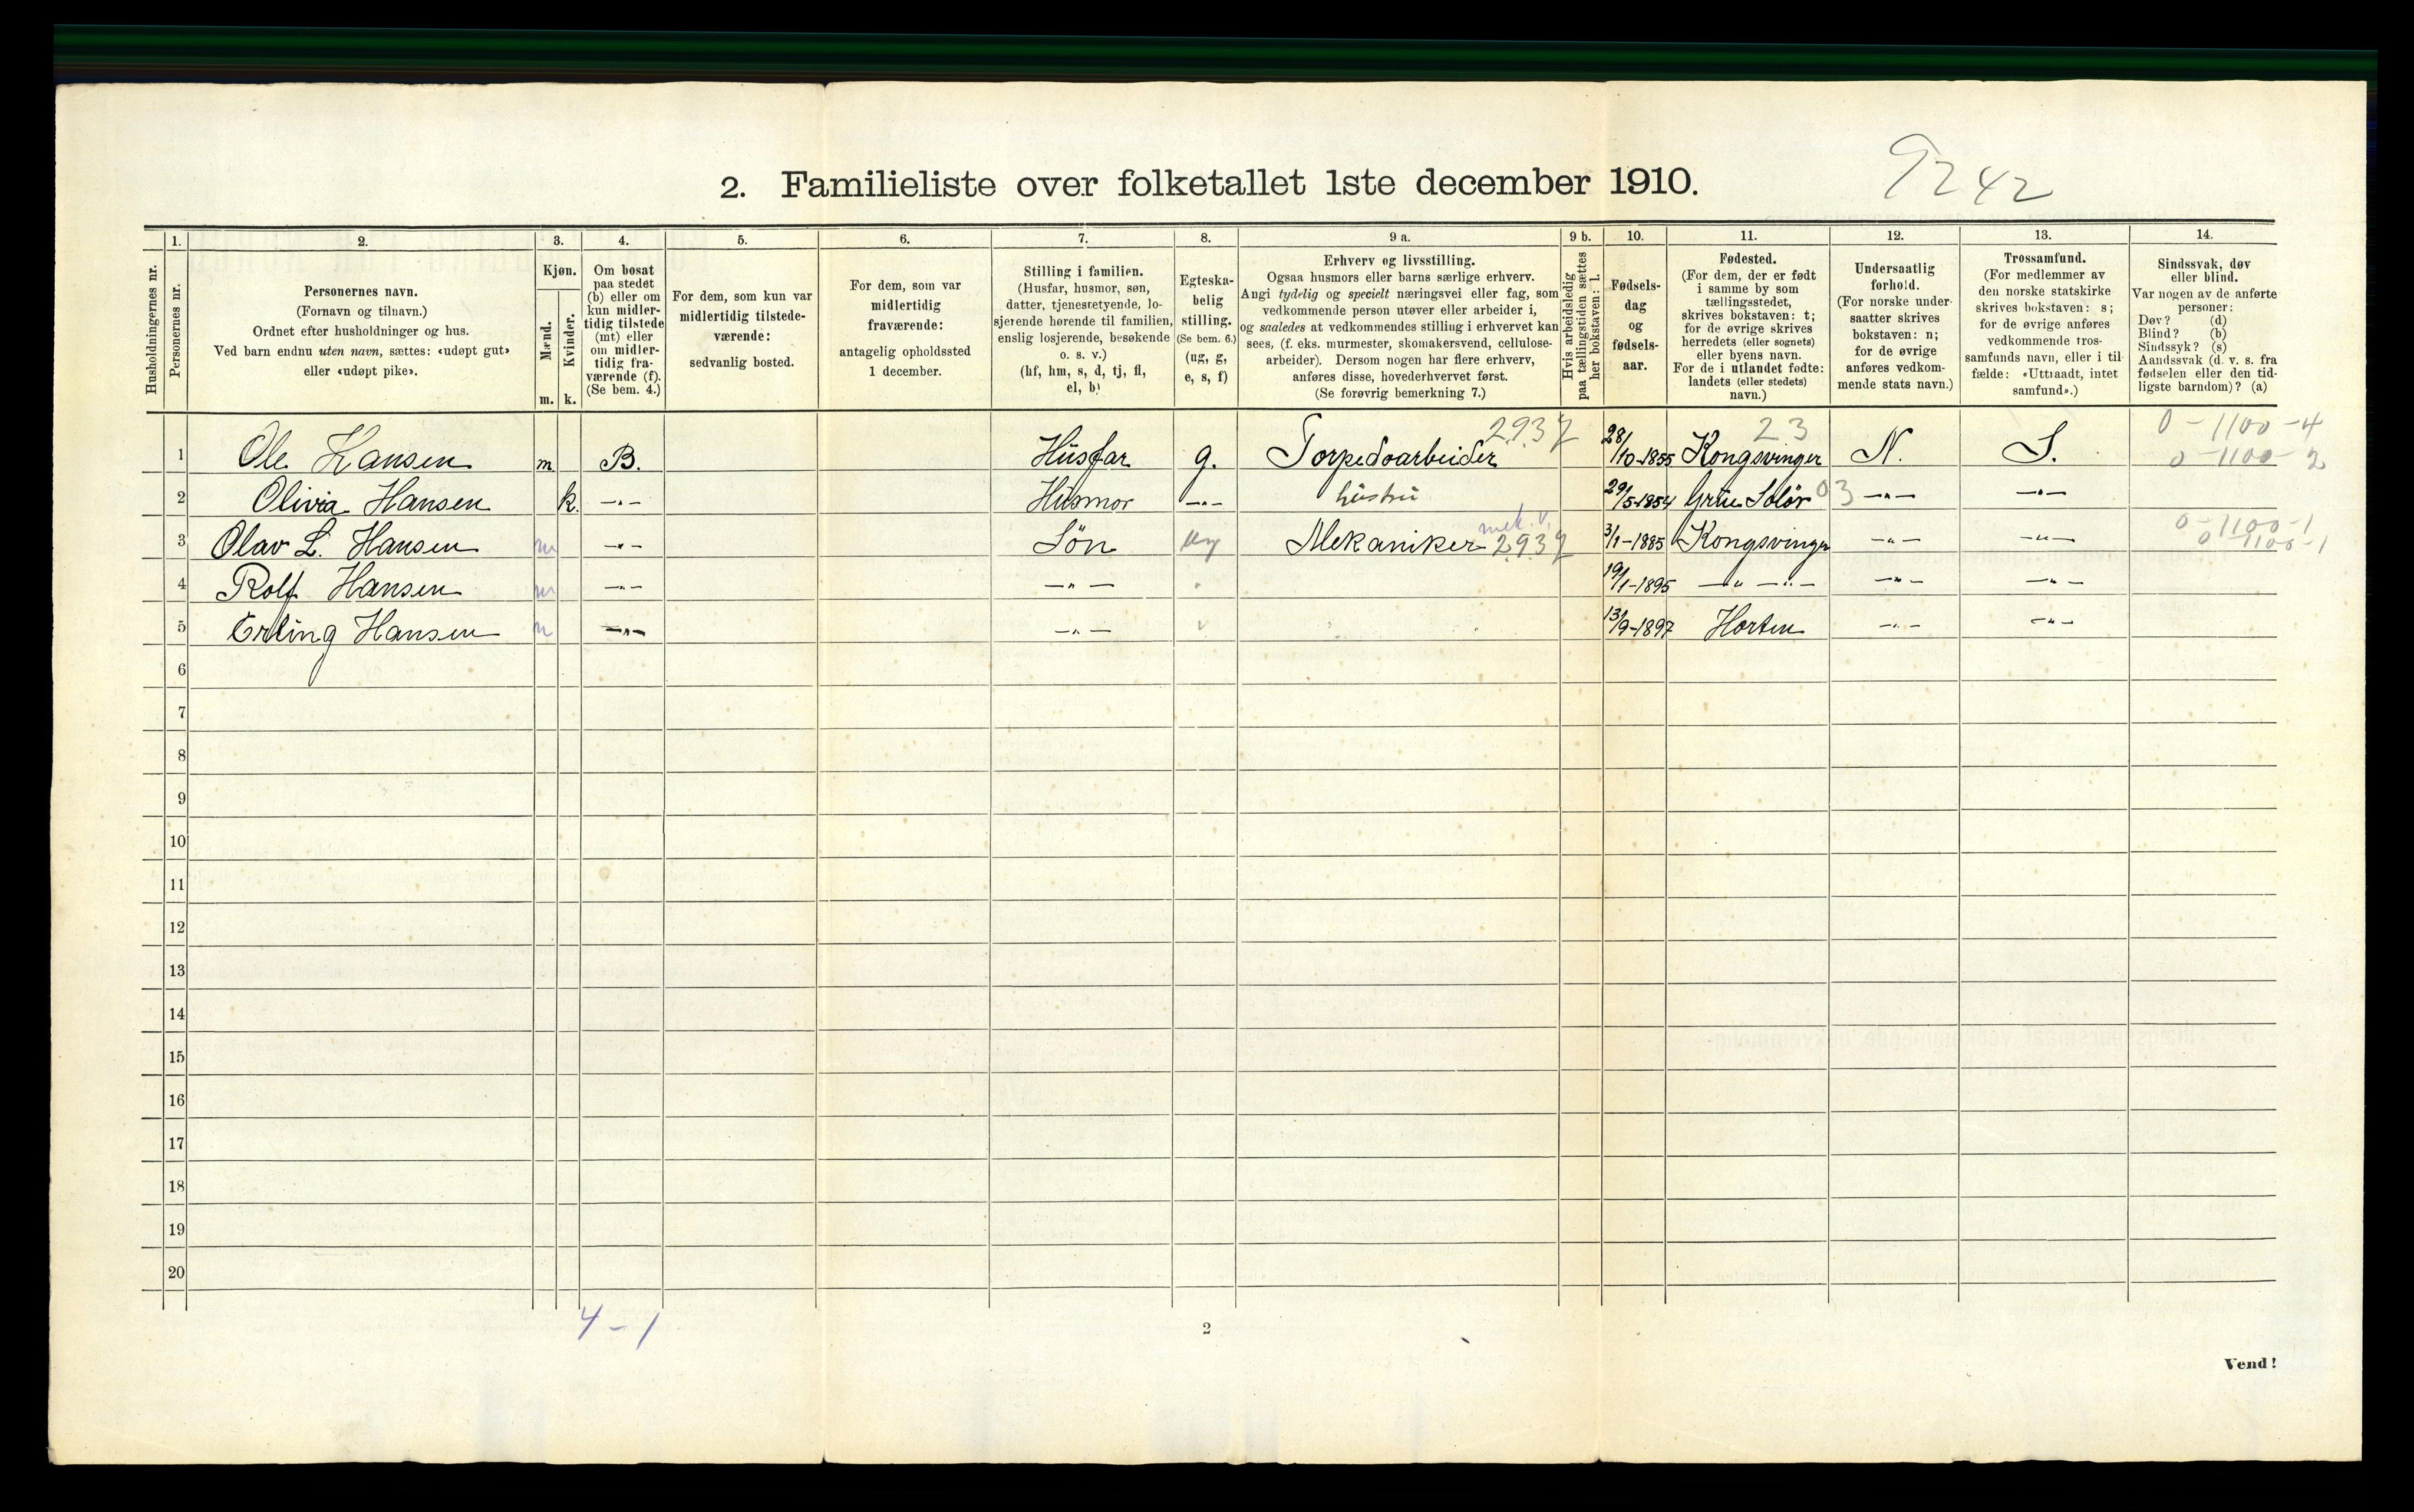 2. Familieliste over folketallet 1ste december 1910.
9242
Husholdningernes nr.
1. Personernes nr.
2. Personernes navn. (Fornavn og tilnavn.) Ordnet efter husholdninger og hus. Ved barn endnu uten navn, sættes: «udøpt gut» eller «udøpt pike».
3. Kjøn. Mænd. m. Kvinder. k.
4. Om bosat paa stedet (b) eller om kun midlertidig tilstede (mt) eller om midlertidig fraværende (f). (Se bem. 4.)
5. For dem, som kun var midlertidig tilstedeværende: sedvanlig bosted.
6. For dem, som var midlertidig fraværende: antagelig opholdssted 1 december.
7. Stilling i familien. (Husfar, husmor, søn, datter, tjenestetyende, losjerende hørende til familien, enslig losjerende, besøkende o. s. v.) (hf, hm, s, d, tj, fl, el, b)
8. Egteskabelig stilling. (Se bem. 6.) (ug, g, e, s, f)
9 a. Erhverv og livsstilling. Ogsaa husmors eller barns særlige erhverv. Angi tydelig og specielt næringsvei eller fag, som vedkommende person utøver eller arbeider i, og saaledes at vedkommendes stilling i erhvervet kan sees, (f. eks. murmester, skomakersvend, cellulosearbeider). Dersom nogen har flere erhverv, anføres disse, hovederhvervet først. (Se forøvrig bemerkning 7.)
9 b. Hvis arbeidsledig paa tællingstiden sættes her bokstaven: l.
10. Fødselsdag og fødselsaar.
11. Fødested. (For dem, der er født i samme by som tællingsstedet, skrives bokstaven: t; for de øvrige skrives herredets (eller sognets) eller byens navn. For de i utlandet fødte: landets (eller stedets) navn.)
12. Undersaatlig forhold. (For norske undersaatter skrives bokstaven: n; for de øvrige anføres vedkommende stats navn.)
13. Trossamfund. (For medlemmer av den norske statskirke skrives bokstaven: s; for de øvrige anføres vedkommende trossamfunds navn, eller i tilfælde: «Uttraadt, intet samfund».)
14. Sindssvak, døv eller blind. Var nogen av de anførte personer: Døv? (d) Blind? (b) Sindssyk? (s) Aandssvak (d. v. s. fra fødselen eller den tidligste barndom)? (a)
2937 23 0-1100-4
1 Ole Hansen m B. Husfar g. Torpedoarbeider 28/10-1855 Kongsvinger N. S. 0-1100-2
2 Olivia Hansen k. -"- Husmor -"- hustru 29/5-1854 Grue Solør 03 -"- -"-
mek. v. 0-1100-1
3 Olav L. Hansen m -"- Søn ug Mekaniker 2937 3/1-1885 Kongsvinger -"- -"- 0-1100-1
4 Rolf Hansen m -"- -"- 19/1-1895 -"- -"- -"- -"-
5 Erling Hansen m -"- -"- 13/9-1897 Horten -"- -"-
6
7
8
9
10
11
12
13
14
15
16
17
18
19
20
4-1
2
Vend!